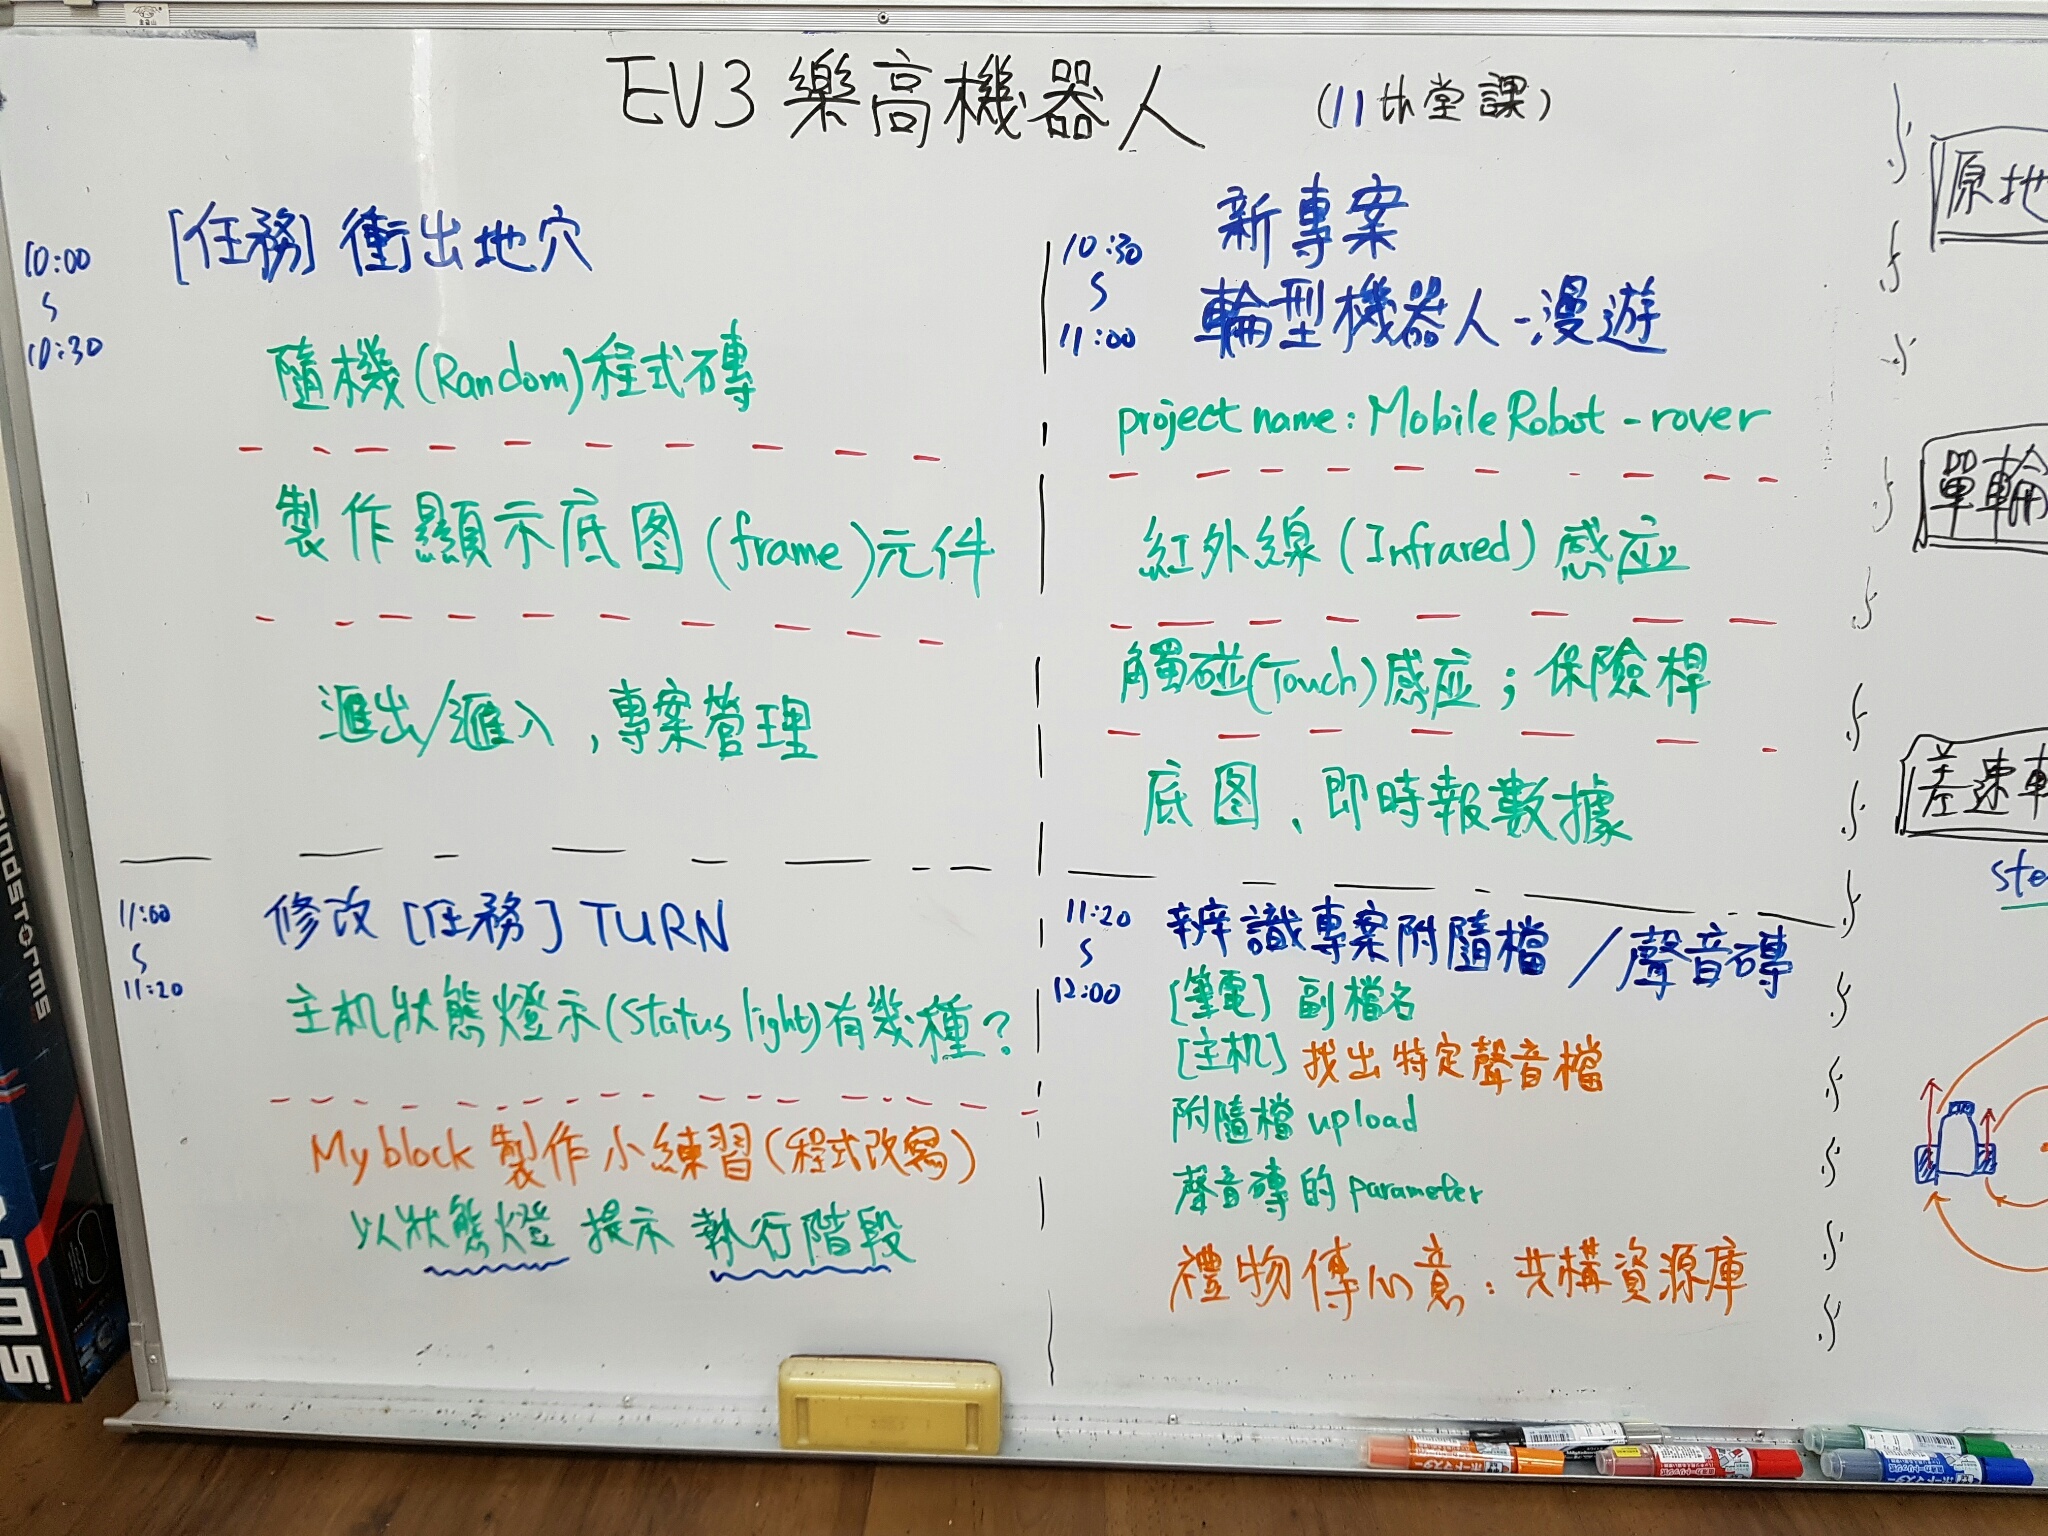 EV3樂高機器人 (11th堂課)
10:00
10:30
[任務] 衝出地穴
隨機(Random)程式磚
製作顯示底图(frame)元件
滙出/滙入,專案管理
10:30
11:00
新專案
輪型機器人-漫遊
project name: MobileRobot-rover
紅外線(Infrared)感应
觸碰(Touch)感应;保險桿
底图、即時報數據
11:00
11:20
修改[任務]TURN
主机狀態燈示(Status light)有幾種?
My block 製作小練習(程式改寫)
以狀態燈 提示 執行階段
11:20
12:00
辨識專案附隨檔/聲音磚
[筆電] 副檔名
[主机] 找出特定聲音檔
附隨檔 upload
聲音磚的 parameter
禮物傳心意:共構資源庫
原地
單輪
差速
ste
MINDSTORMS